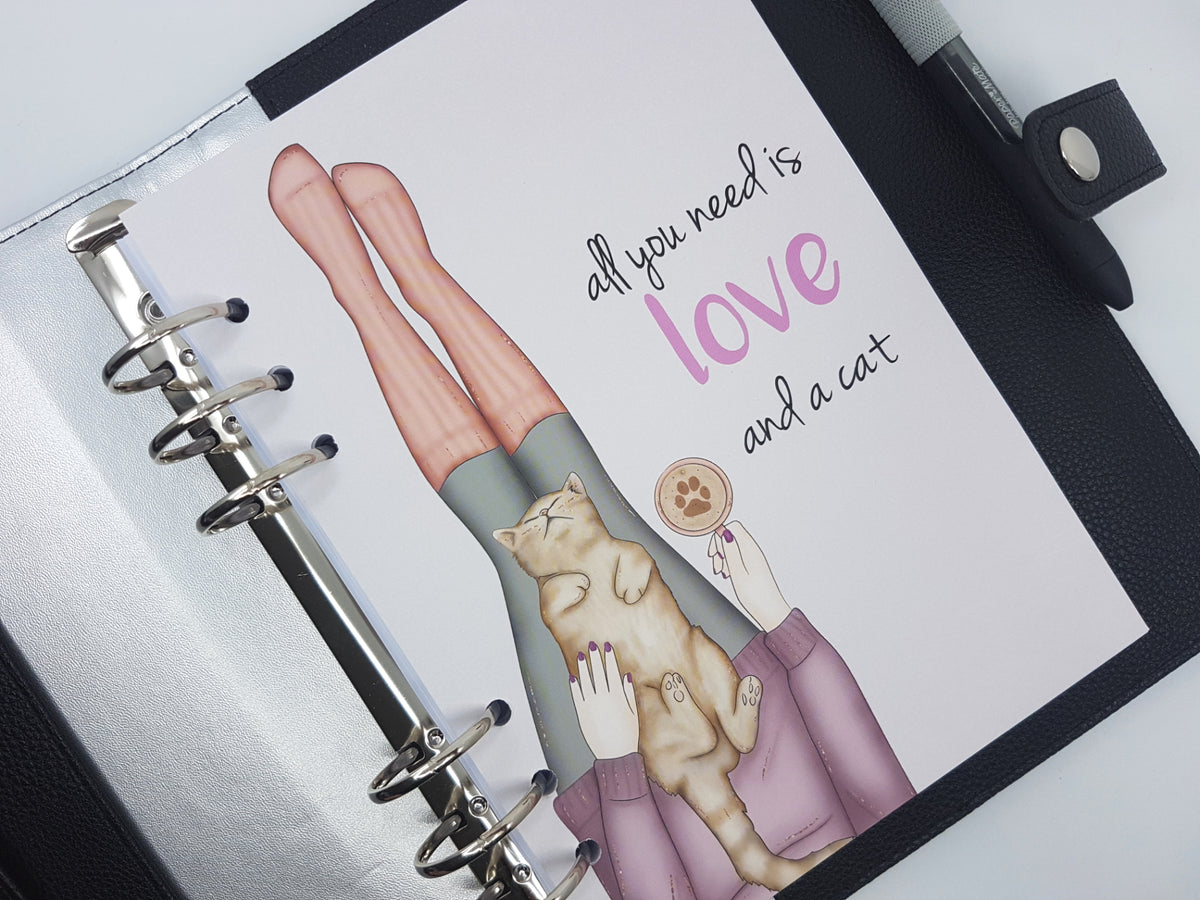 all you need is
love
and a cat
PaperMate